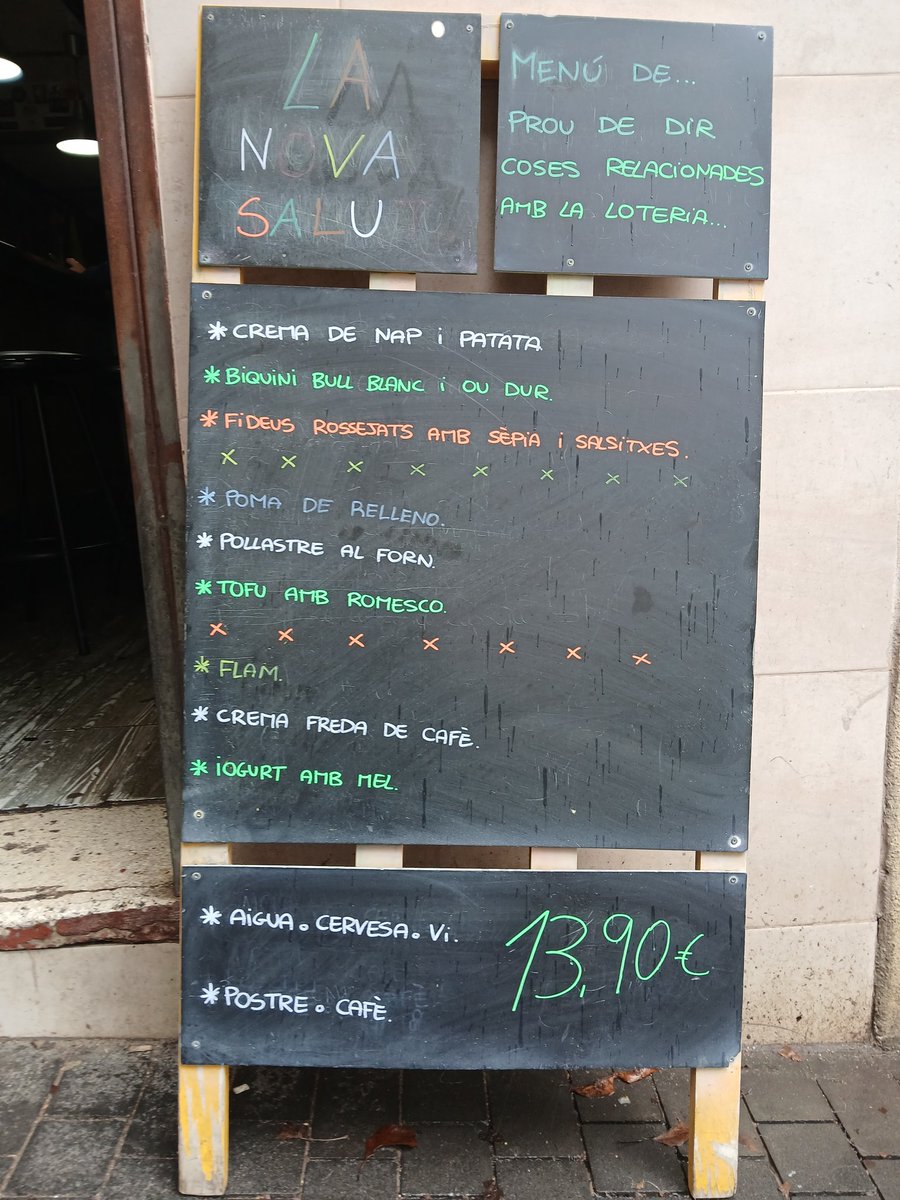 LA
NOVA
SALU
MENÚ DE...
PROU DE DIR
COSES RELACIONADES
AMB LA LOTERIA...
* CREMA DE NAP i PATATA
* BIQUINI BULL BLANC i OU DUR.
* FIDEUS ROSSEJATS AMB SÈPIA i SALSITXES.
x x x x x x x x
* POMA DE RELLENO.
* POLLASTRE AL FORN.
* TOFU AMB ROMESCO.
x x x x x x x
* FLAM.
* CREMA FREDA DE CAFÈ.
* iOGURT AMB MEL.
* AIGUA. CERVESA. Vi.
13,90€
* POSTRE. CAFÈ.